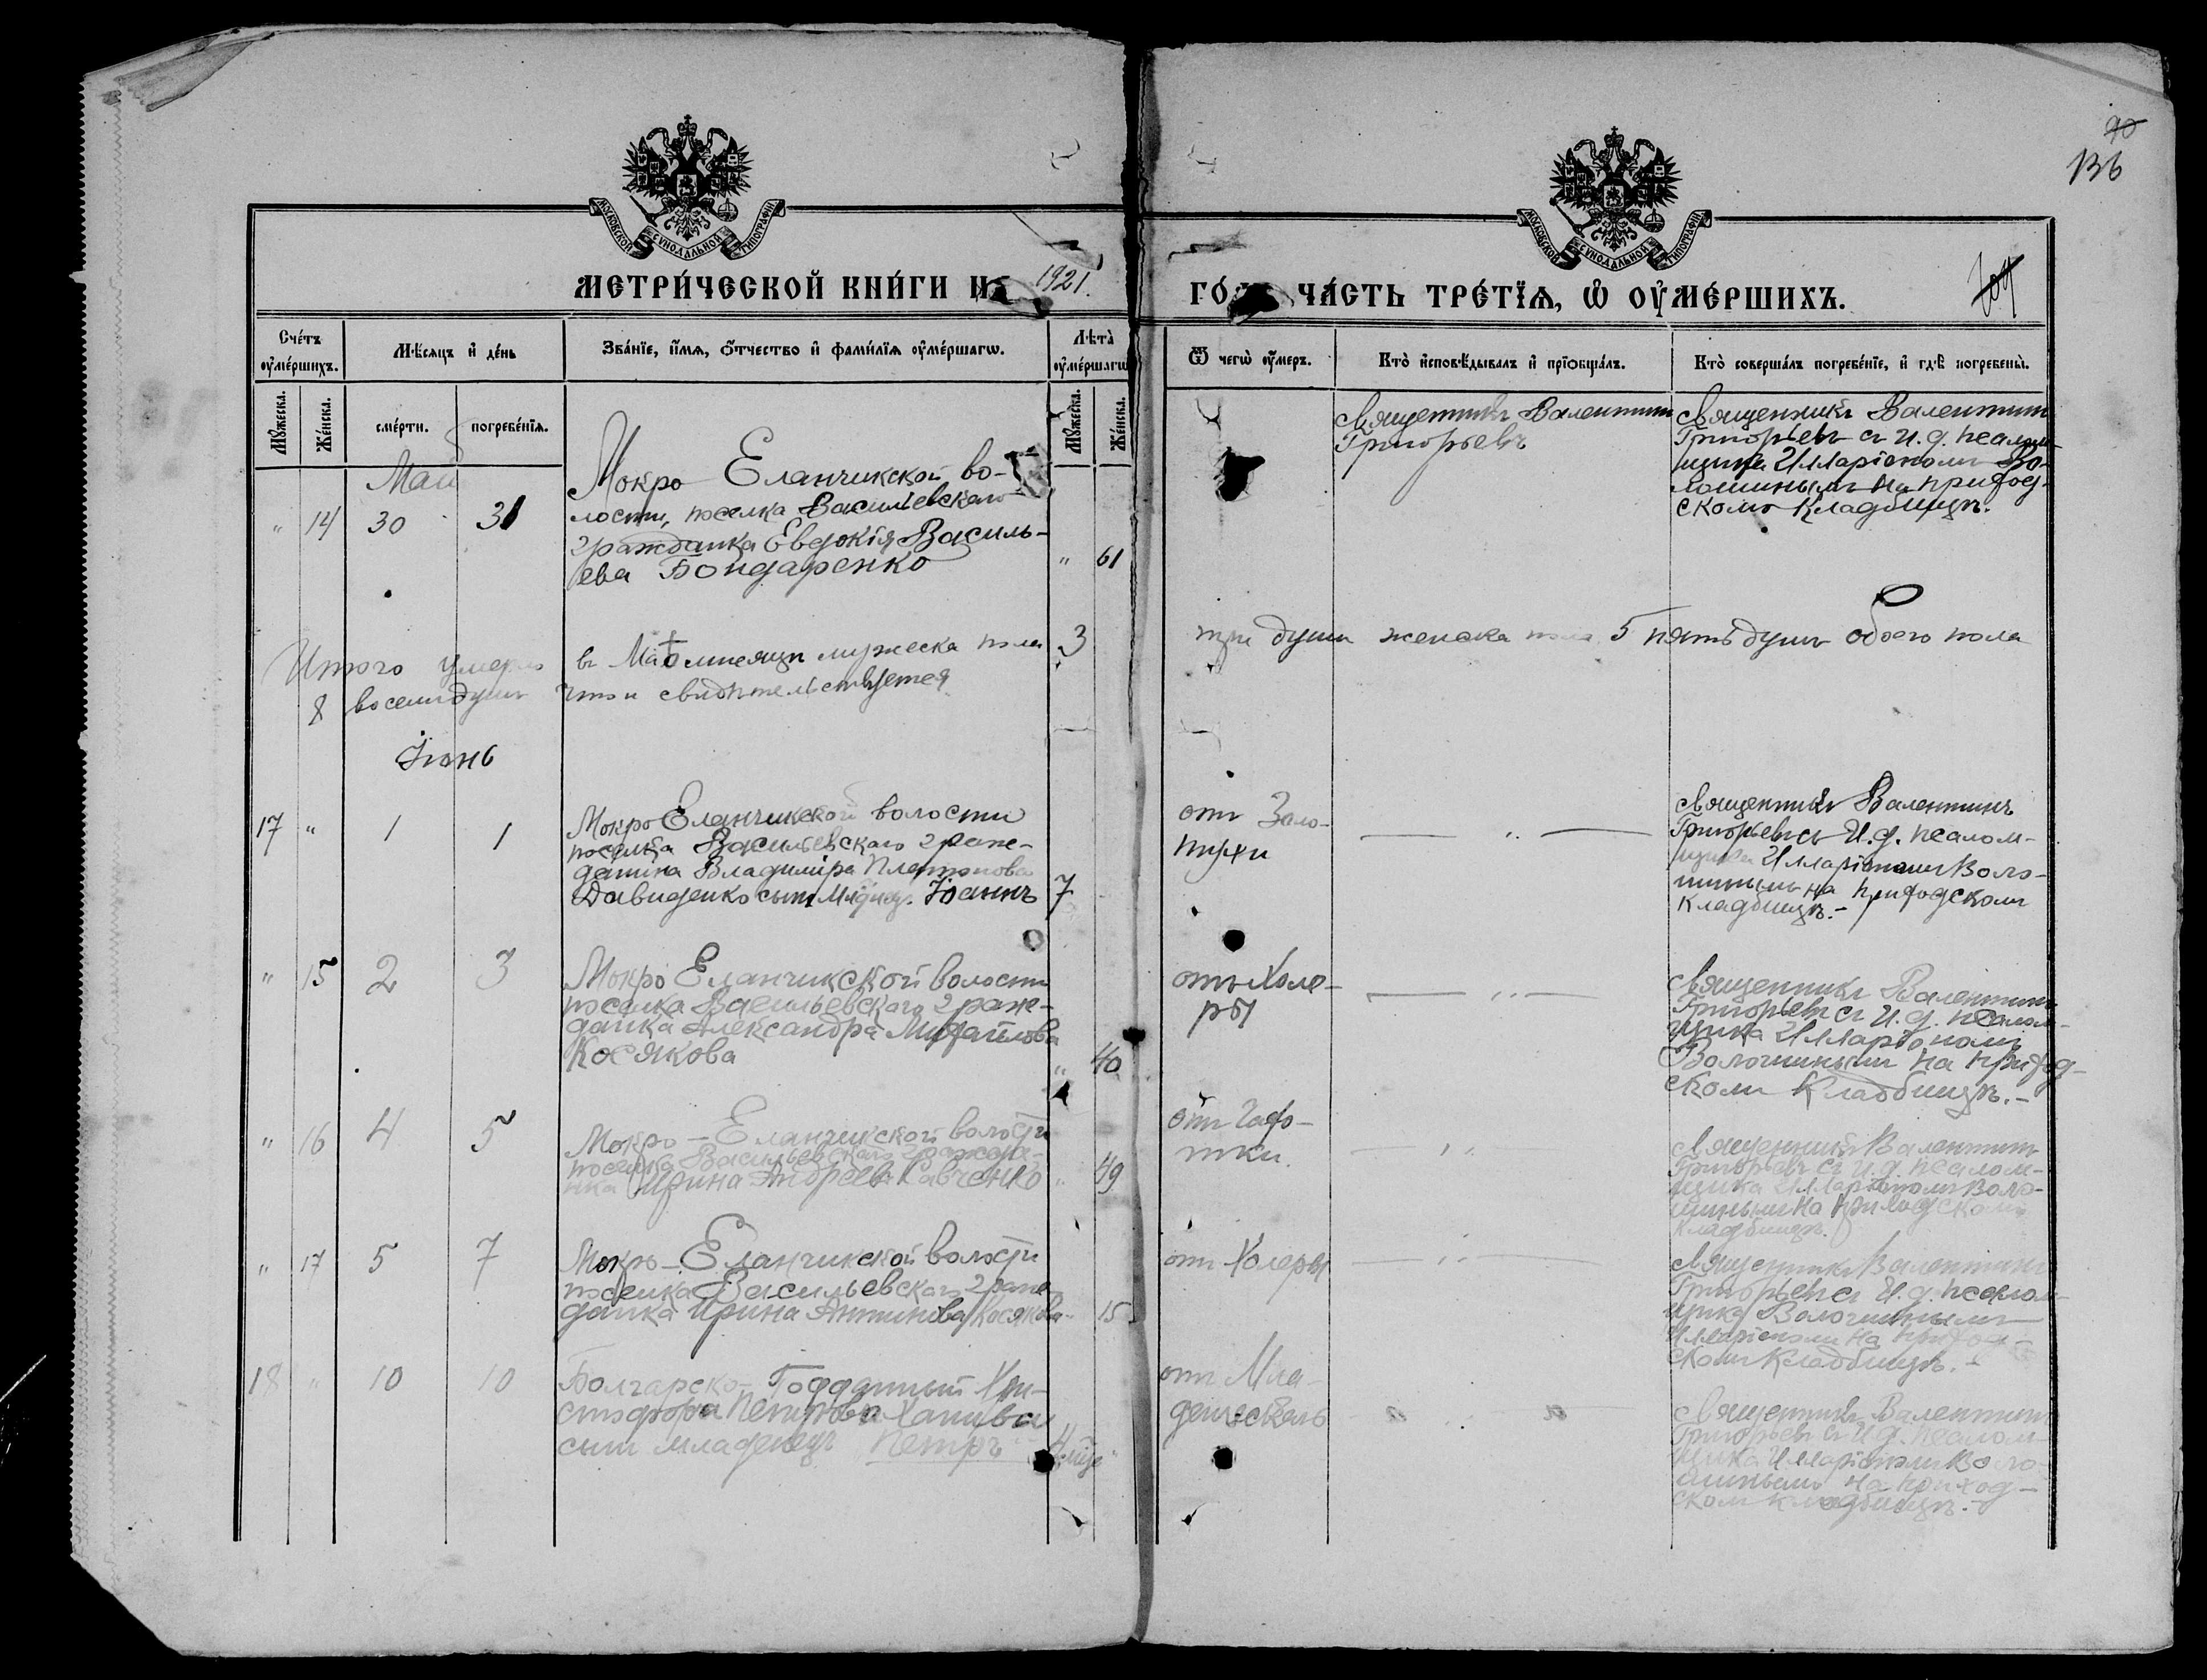 90
136
МОСКОВСКОЙ СѴНОДАЛЬНОЙ ТИПОГРАФІИ
МОСКОВСКОЙ СѴНОДАЛЬНОЙ ТИПОГРАФІИ
МЕТРИ́ЧЕСКОЙ КНИ́ГИ НА 1921.
ГО́ ЧА́СТЬ ТРЕ́ТЇѦ, Ѽ ОУ҆МЕ́РШИХЪ.
Сче́тъ оу҆ме́ршихъ.
Мѣ́сѧцъ и҆ де́нь
Зва́нїе, и҆́мѧ, ѻ҆́тчество и҆ фами́лїѧ оу҆ме́ршагѡ.
Лѣ́та оу҆ме́ршагѡ
Ѿ чегѡ̀ оу҆́меръ.
Кто̀ и҆сповѣ́дывалъ и҆ прїѻбща́лъ.
Кто̀ соверша́лъ погребе́нїе, и҆ гдѣ̀ погребены̀.
Мꙋ́жеска.
Же́нска.
сме́рти.
погребе́нїѧ.
Мꙋ́жеска.
Же́нска.
Май
" 14 30 31
Мокро Еланчикской во-
лости, поселка Васильевскаго
гражданка Евдокія Василь-
ева Бондаренко
" 61
Священникъ Валентин
Григорьевъ
Священникъ Валентин
Григорьевъ съ И. д. псалом
щика Илларіоном Во-
лошиным на приход-
ском кладбищѣ.
Итого умерло в Маѣ месяцѣ мужеска пола 3 три души женска пола 5 пять душъ обоего пола
8 восемь душъ что и свидѣтельствуется
Іюнь
17 " 1 1
Мокро Еланчикской волости
поселка Васильевскаго граж-
данина Владимира Платонова
Давиденко сын Іоаннъ
7
от Золо-
тухи
— " —
священникъ Валентинъ
Григорьевъ съ И. д. псалом-
щика Илларіоном Воло-
шиным на приходском
кладбищѣ.-
" 15 2 3
Мокро Еланчикской волости
поселка Васильевскаго граж-
данка Александра Михайлова
Косякова
" 40
отъ Холе-
ры
— " —
священникъ Валентин
Григорьевъ съ И. д. псалом-
щика Илларіоном
Волошиным на приход-
ском кладбищѣ.-
" 16 4 5
Мокро-Еланчикской волости
поселка Васильевскаго граждан-
ка Ирина Андреева Савченко
" 49
от Чахо-
тки.
— " —
священникъ Валентин
Григорьевъ съ И. д. псалом-
щика Илларіоном Воло-
шиным на приходском
кладбищѣ.
" 17 5 7
Мокро-Еланчикской волости
поселка Васильевскаго граж
данка Ирина Антинова Косякова
15
от Холеры
— " —
священникъ Валентин
Григорьевъ съ И. д. псалом-
щика Волошиным
Илларіоном на приход-
ском кладбищѣ.-
18 " 10 10
Болгарско-Подданный Хри-
стофора Петрова
сын младенец Петръ
от Мла-
денческаго
священникъ Валентин
Григорьевъ съ И. д. псалом-
щика Илларіоном Воло
шиным на приход-
ском кладбищѣ.-